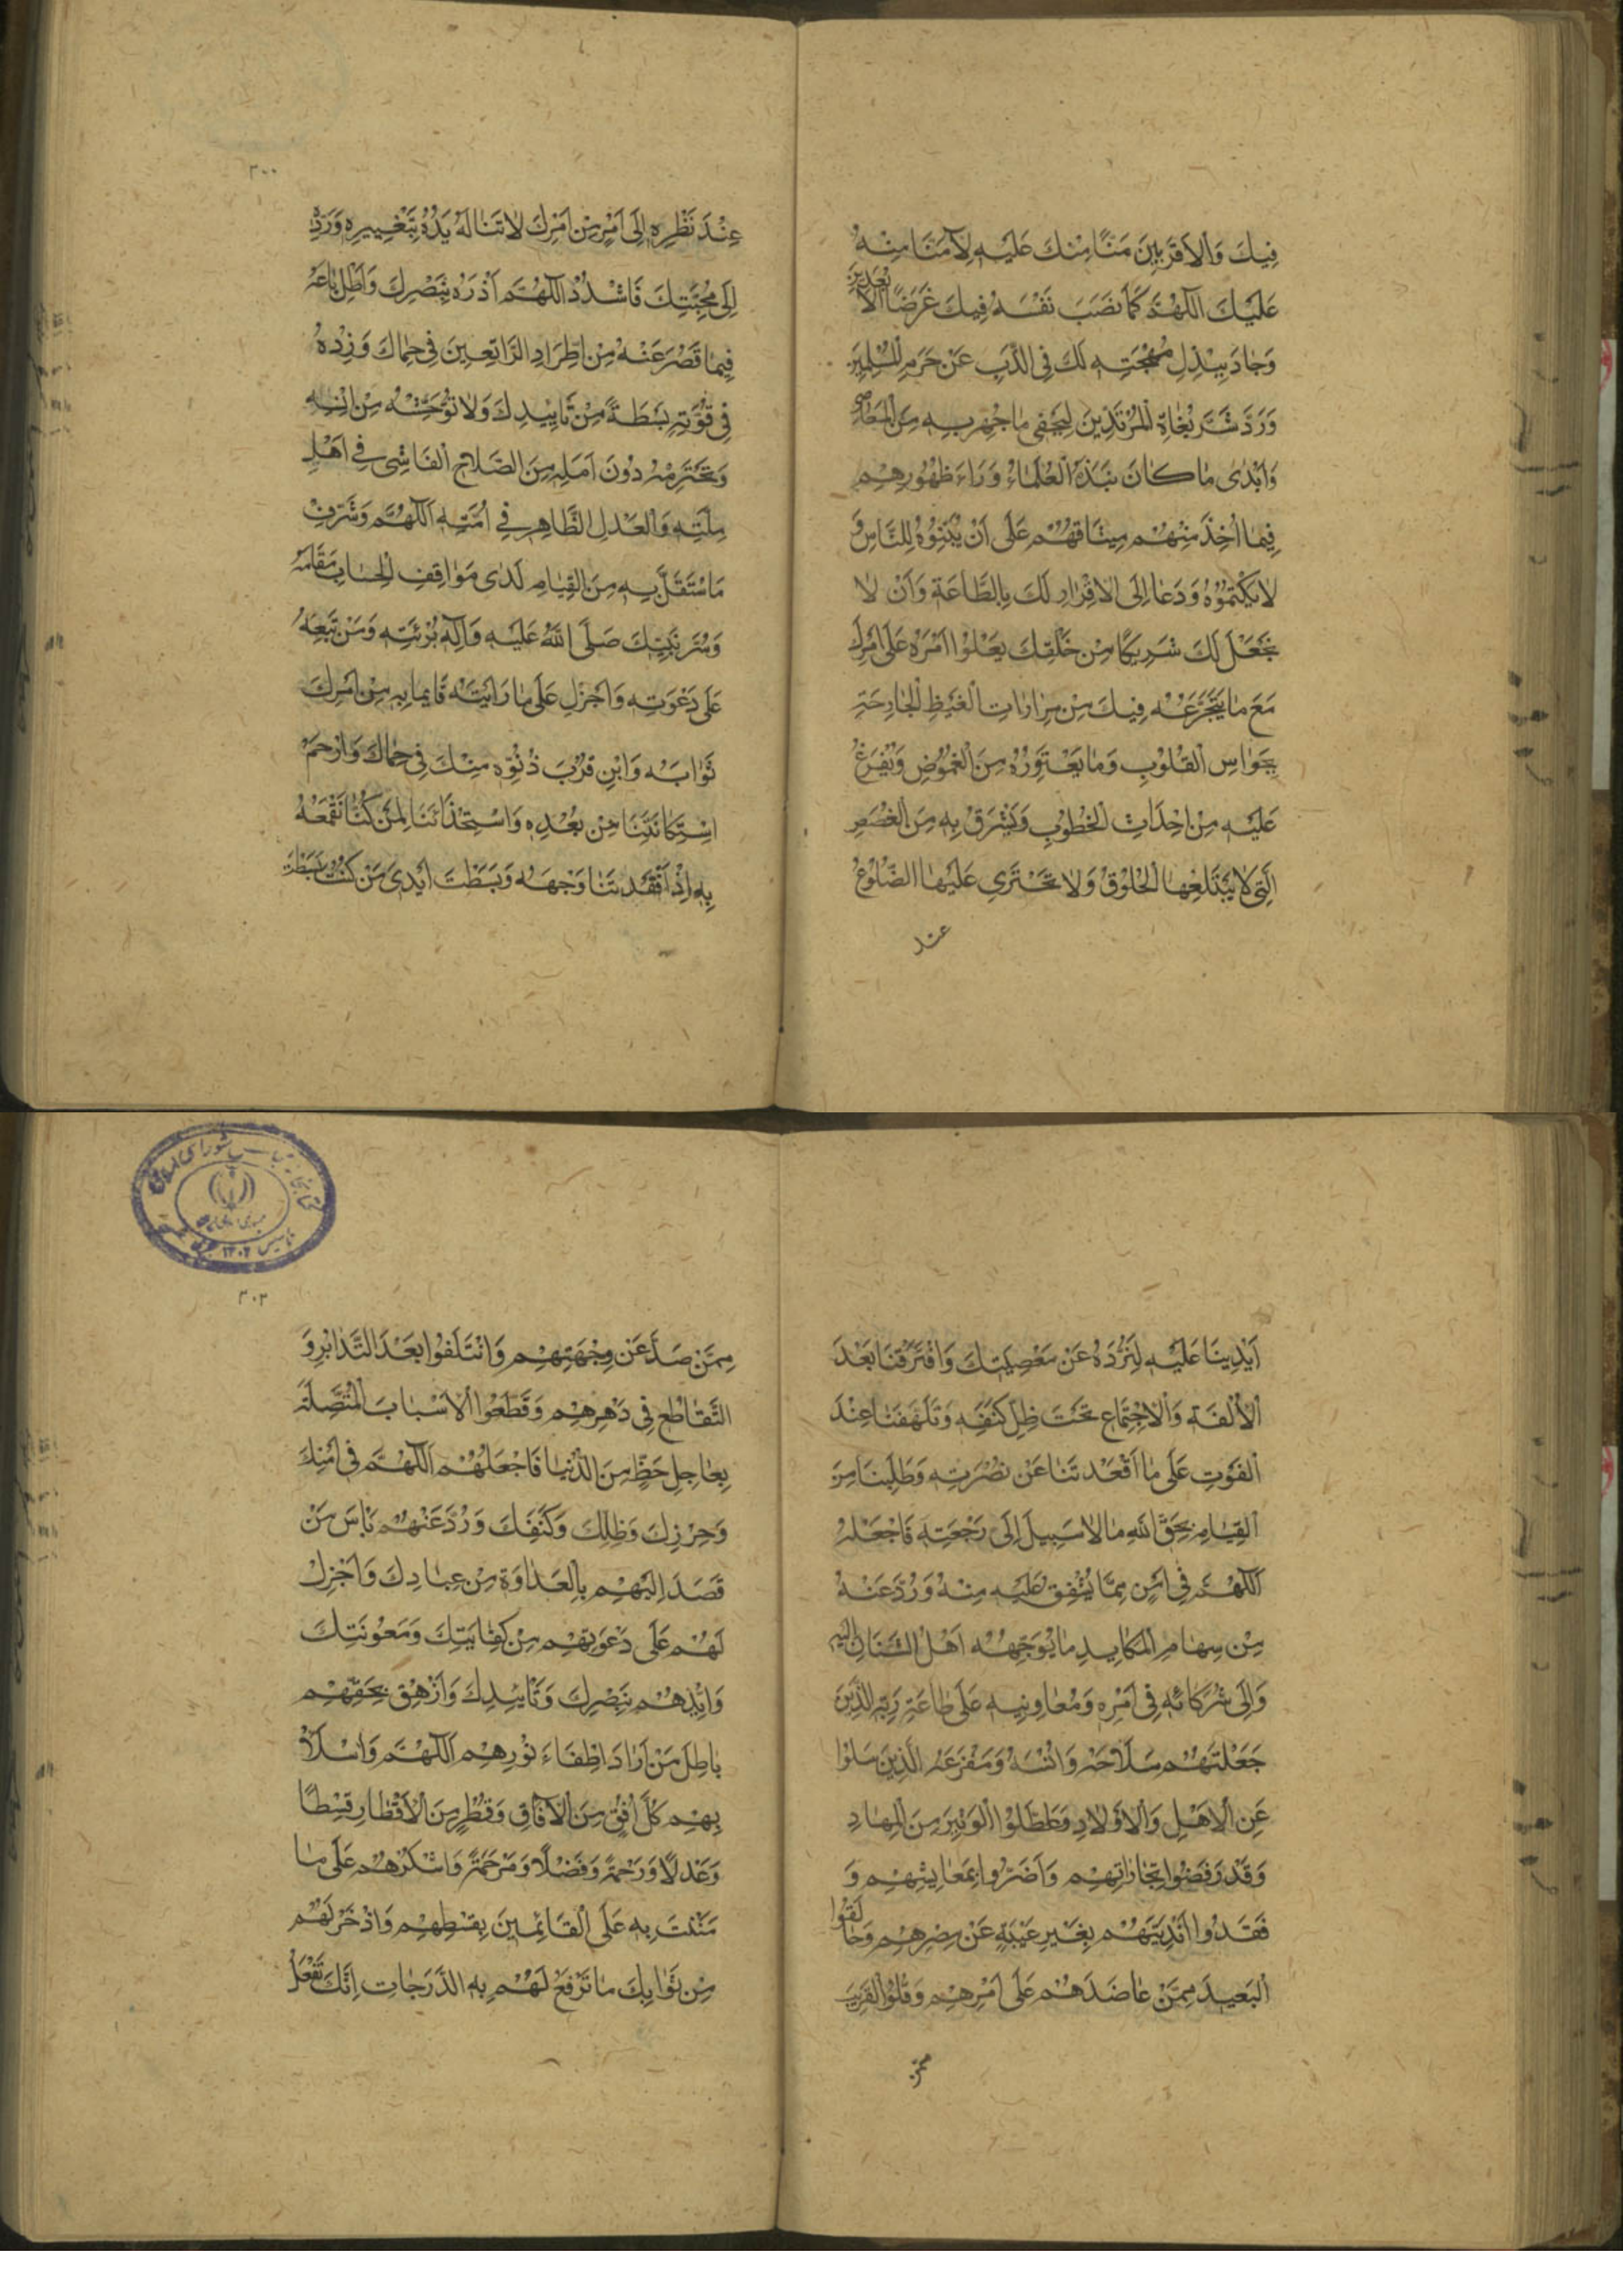 فِيكَ وَالْأَقْرَبِينَ مَنًّا مِنْكَ عَلَيْهِ لَا مَنًّا مِنْهُ
عَلَيْكَ اللّٰهُمَّ كَمَا نَصَبَ نَفْسَهُ فِيكَ غَرَضًا لِلْأَبْعَدِينَ
وَجَادَ بِبَذْلِ مُهْجَتِهِ لَكَ فِي الذَّبِّ عَنْ حَرَمِ الْمُسْلِمِينَ
وَرَدَّ شَرَّ بُغَاةِ الْمُرْتَدِّينَ لِيُخْفِيَ مَا جُهِرَ بِهِ مِنَ الْمَعَاصِي
وَأَبْدَى مَا كَانَ نَبَذَهُ الْعُلَمَاءُ وَرَاءَ ظُهُورِهِمْ
فِيمَا أَخَذَ مِنْهُمْ مِيثَاقَهُمْ عَلَى أَنْ يُبَيِّنُوهُ لِلنَّاسِ وَ
لَا يَكْتُمُوهُ وَدَعَا إِلَى الْإِقْرَارِ لَكَ بِالطَّاعَةِ وَأَنْ لَا
يَجْعَلَ لَكَ شَرِيكًا مِنْ خَلْقِكَ يَعْلُوا أَمْرُهُ عَلَى أَمْرِكَ
مَعَ مَا يَتَجَرَّعُهُ فِيكَ مِنْ مَرَارَاتِ الْغَيْظِ الْجَارِحَةِ
بِحَوَاسِ الْقُلُوبِ وَمَا يَعْتَوِرُهُ مِنَ الْغُمُوضِ وَيُفْرَغُ
عَلَيْهِ مِنْ أَحْدَاثِ الْخُطُوبِ وَيَشْرَقُ بِهِ مِنَ الْغُصَصِ
الَّتِي لَا تَبْتَلِعُهَا الْحُلُوقُ وَلَا تَحْتَوِي عَلَيْهَا الضُّلُوعُ
عند
٣٠٠
عِنْدَ نَظَرِهِ إِلَى أَمْرٍ مِنْ أَمْرِكَ لَا تَنَالُهُ يَدُهُ بِتَغْيِيرِهِ وَرَدِّهِ
إِلَى مَحَبَّتِكَ فَاشْدُدِ اللّٰهُمَّ أَزْرَهُ بِنَصْرِكَ وَأَطِلْ بَاعَهُ
فِيمَا قَصُرَ عَنْهُ مِنِ اطِّرَادِ الرَّاتِعِينَ فِي حِمَاكَ وَزِدْهُ
فِي قُوَّتِهِ بَسْطَةً مِنْ تَأْيِيدِكَ وَلَا تُوحِشْهُ مِنْ أُنْسِهِ
وَتَخْتَرِمْهُ دُونَ أَمَلِهِ مِنَ الصَّلَاحِ الْفَاشِي فِي أَهْلِ
مِلَّتِهِ وَالْعَدْلِ الظَّاهِرِ فِي أُمَّتِهِ اللّٰهُمَّ وَشَرِّفْ
مَا اسْتَقَلَّ بِهِ مِنَ الْقِيَامِ لَدَى مَوَاقِفِ الْحِسَابِ مَقَامَهُ
وَسُرَّ نَبِيَّكَ صَلَّى اللّٰهُ عَلَيْهِ وَآلِهِ بُرْئَتِهِ وَمَنْ تَبِعَهُ
عَلَى دَعْوَتِهِ وَأَجْزِلْ عَلَى مَا رَأَيْتَهُ قَائِمًا بِهِ مِنْ أَمْرِكَ
ثَوَابَهُ وَابْنِ قُرْبَ دُنُوِّهِ مِنْكَ فِي حِمَاكَ وَارْحَمْ
اسْتِكَانَتَنَا مِنْ بُعْدِهِ وَاسْتِخْذَائَنَا لِمَنْ كُنَّا نَقْمَعُهُ
بِهِ إِذْ أَفْقَدْتَنَا وَجْهَهُ وَبَسَطْتَ أَيْدِي مَنْ كُنْتَ بَسَطْتَ
أَيْدِينَا عَلَيْهِ لِنَرُدَّهُ عَنْ مَعْصِيَتِكَ وَافْتَرَقْنَا بَعْدَ
الْأُلْفَةِ وَالْاجْتِمَاعِ تَحْتَ ظِلِّ كَنَفِهِ وَتَلَهَّفْنَا عِنْدَ
الْفَوْتِ عَلَى مَا أَقْعَدْتَنَا عَنْ نُصْرَتِهِ وَطَلَبْنَا مِنَ
الْقِيَامِ بِحَقِّ اللّٰهِ مَا لَا سَبِيلَ إِلَى رَجْعَتِهِ فَاجْعَلْهُ
اللّٰهُمَّ فِي أَمْنٍ مِمَّا يُشْفَقُ عَلَيْهِ مِنْهُ وَرُدَّ عَنْهُ
مِنْ سِهَامِ الْمَكَايِدِ مَا يُوَجِّهُهُ أَهْلُ الشَّنَآنِ إِلَيْهِ
وَإِلَى شُرَكَائِهِ فِي أَمْرِهِ وَمُعَاوِنِيهِ عَلَى طَاعَةِ رَبِّهِ الَّذِينَ
جَعَلْتَهُمْ سِلَاحَهُ وَأُنْسَهُ وَمَفْزَعَهُ الَّذِينَ سَلَوْا
عَنِ الْأَهْلِ وَالْأَوْلَادِ وَعَطَّلُوا الْوَثِيرَ مِنَ الْمِهَادِ
وَقَدْ رَفَضُوا تِجَارَاتِهِمْ وَأَضَرُّوا بِمَعَايِشِهِمْ وَ
فَقَدُوا أَنْدِيَتَهُمْ بِغَيْرِ غَيْبَةٍ عَنْ مِصْرِهِمْ وَحَالَفُوا
الْبَعِيدَ مِمَّنْ عَاضَدَهُمْ عَلَى أَمْرِهِمْ وَقَلَوُا الْقَرِيبَ
ممن
٣٠٢
مِمَّنْ صَدَّ عَنْ وِجْهَتِهِمْ وَائْتَلَفُوا بَعْدَ التَّدَابُرِ وَ
التَّقَاطُعِ فِي دَهْرِهِمْ وَقَطَعُوا الْأَسْبَابَ الْمُتَّصِلَةَ
بِعَاجِلِ حَظٍّ مِنَ الدُّنْيَا فَاجْعَلْهُمُ اللّٰهُمَّ فِي أَمْنِكَ
وَحِرْزِكَ وَظِلِّكَ وَكَنَفِكَ وَرُدَّ عَنْهُمْ بَأْسَ مَنْ
قَصَدَ إِلَيْهِمْ بِالْعَدَاوَةِ مِنْ عِبَادِكَ وَأَجْزِلْ
لَهُمْ عَلَى دَعْوَتِهِمْ مِنْ كِفَايَتِكَ وَمَعُونَتِكَ
وَأَيِّدْهُمْ بِنَصْرِكَ وَتَأْيِيدِكَ وَأَزْهِقْ بِحَقِّهِمْ
بَاطِلَ مَنْ أَرَادَ إِطْفَاءَ نُورِهِمُ اللّٰهُمَّ وَامْلَأْ
بِهِمْ كُلَّ أُفُقٍ مِنَ الْآفَاقِ وَقُطْرٍ مِنَ الْأَقْطَارِ قِسْطًا
وَعَدْلًا وَرَحْمَةً وَفَضْلًا وَمَرْحَمَةً وَاشْكُرْهُمْ عَلَى مَا
مَنَنْتَ بِهِ عَلَى الْقَائِمِينَ بِقِسْطِهِمْ وَاذْخَرْ لَهُمْ
مِنْ ثَوَابِكَ مَا تَرْفَعُ لَهُمْ بِهِ الدَّرَجَاتِ إِنَّكَ تَفْعَلُ